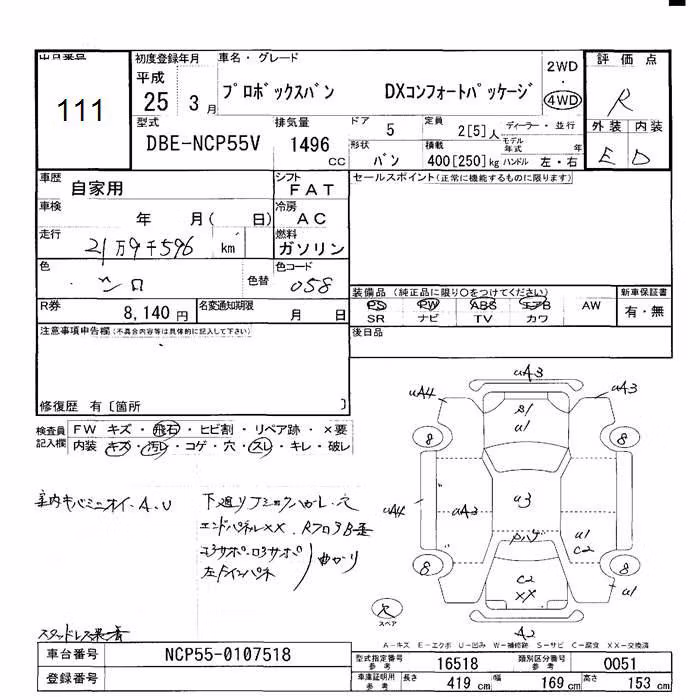 111
初度登録年月 車名・グレード
平成 25 3月
プロボックスバン DXコンフォートパッケージ
2WD・4WD
評価点
R
外装 内装
E D
型式 排気量 ドア 定員 ディーラー・並行
DBE-NCP55V 1496 CC 5 2[5]人 モデル年式 年
形状 積載
バン 400[250]kg ハンドル 左・右
車歴 自家用 シフト FAT
セールスポイント(正常に機能するものに限ります)
車検 年 月( 日) 冷房 AC
走行 21万9千596 km 燃料 ガソリン
色 シロ 色替 色コード 058
装備品(純正品に限り〇をつけてください) 新車保証書
PS PW ABS エアB AW 有・無
SR ナビ TV カワ
R券 8,140円 名変通知期限 月 日
後日品
注意事項申告欄(不具合内容等は具体的に記入して下さい)
修復歴 有〔箇所 〕
検査員記入欄
FW キズ・飛石・ヒビ割・リペア跡・×要
内装 キズ・汚レ・コゲ・穴・スレ・キレ・破レ
uA3
uA4 uA3
S1
u1
8 8
uA4 uA3 u3
u1
C2
8 8
C2
XX
u1
A2
スペア
下廻り
エンドパネルXX
スタッドレス
A-キズ E-エクボ U-凹み W-補修跡 S-サビ C-腐食 XX-交換済
車台番号 NCP55-0107518
登録番号
型式指定番号 参考 16518 類別区分番号 参考 0051
車庫証明用 参考 長さ 419 cm 幅 169 cm 高さ 153 cm